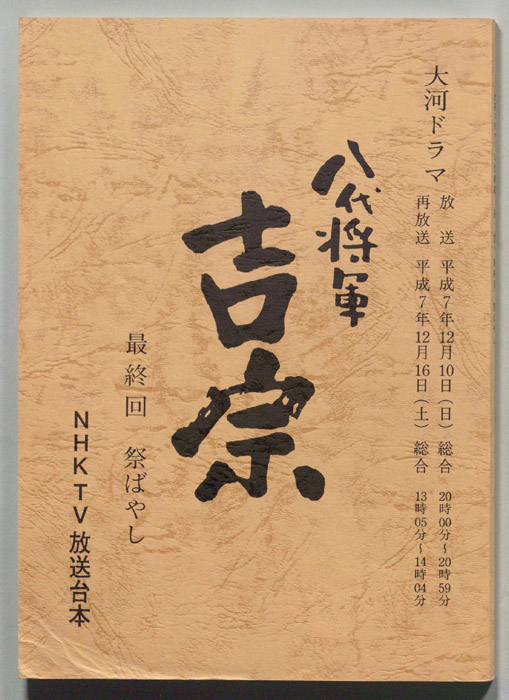 大河ドラマ
放送 平成7年12月10日(日) 総合 20時00分~20時59分
再放送 平成7年12月16日(土) 総合 13時05分~14時04分
八代将軍
吉宗
最終回 祭ばやし
NHKTV放送台本